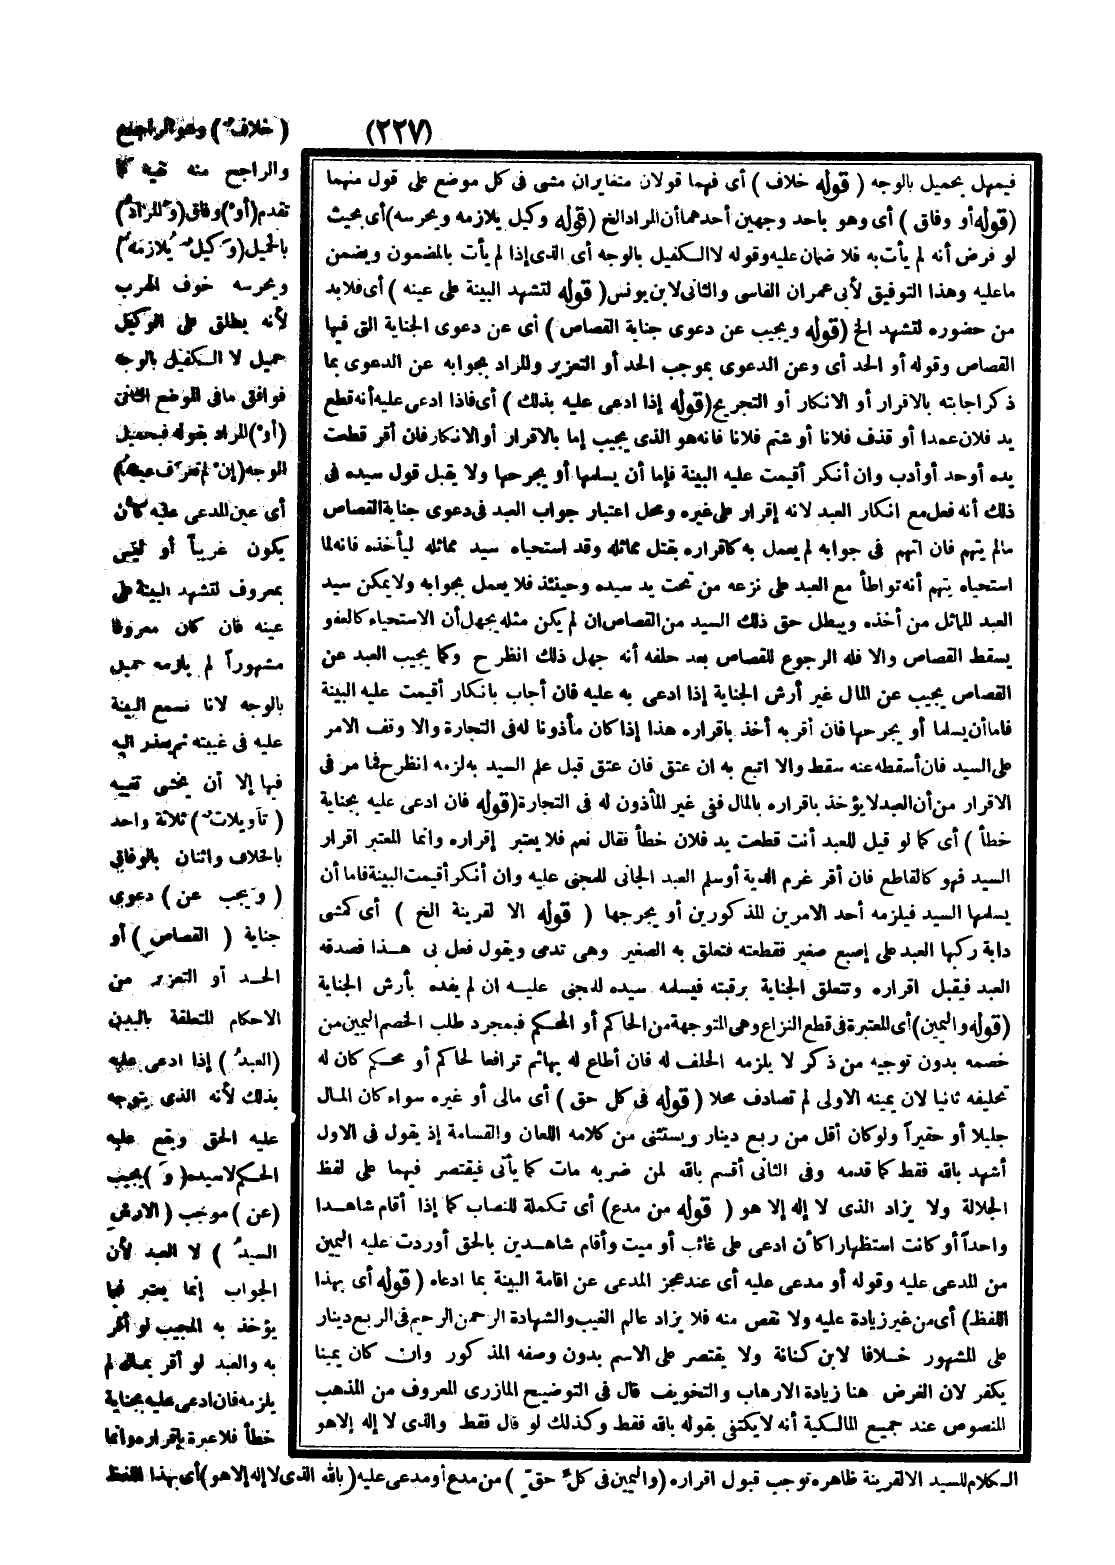 (٢٢٧)
فيمهل بحميل بالوجه ( قوله خلاف ) أى فهما قولان متغايران مشى فى كل موضع على قول منهما
(قوله أو وفاق ) أى وهو باحد وجهين أحدهما أن المراد الخ (قوله وكيل يلازمه ويحرسه) أى بحيث
لو فرض أنه لم يأت به فلا ضمان عليه وقوله لا الكفيل بالوجه أى الذى إذا لم يأت بالمضمون ويضمن
ما عليه وهذا التوفيق لأبى عمران الفاسى والثانى لابن يونس ( قوله لتشهد البينة على عينه ) أى فلا بد
من حضوره لتشهد الخ (قوله ويجيب عن دعوى جناية القصاص ) أى عن دعوى الجناية التى فيها
القصاص وقوله أو الحد أى وعن الدعوى بموجب الحد أو التعزير والمراد بجوابه عن الدعوى بما
ذكر اجابته بالاقرار أو الانكار أو التجريح (قوله إذا ادعى عليه بذلك ) أى فاذا ادعى عليه أنه قطع
يد فلان عمدا أو قذف فلانا أو شتم فلانا فانه هو الذى يجيب إما بالاقرار أو الانكار فان أقر قطعت
يده أو حد أو أدب وان أنكر أقيمت عليه البينة فإما أن يسلمها أو يجرحها ولا يقبل قول سيده فى
ذلك أنه فعل مع انكار العبد لانه إقرار على غيره ومحل اعتبار جواب العبد فى دعوى جناية القصاص
مالم يتهم فان اتهم فى جوابه لم يعمل به كاقراره بقتل مماثله وقد استحياه سيد مماثله ليأخذه فانه لما
استحياه يتهم أنه تواطأ مع العبد على نزعه من تحت يد سيده وحينئذ فلا يعمل بجوابه ولا يمكن سيد
العبد المماثل من أخذه ويبطل حق ذلك السيد من القصاص ان لم يكن مثله يجهل أن الاستحياء كالعفو
يسقط القصاص والا فله الرجوع للقصاص بعد حلفه أنه جهل ذلك انظر ح وكما يجيب العبد عن
القصاص يجيب عن المال غير أرش الجناية إذا ادعى به عليه فان أجاب بانكار أقيمت عليه البينة
فاما أن يسلما أو يجرحها فان أقر به أخذ باقراره هذا إذا كان مأذونا له فى التجارة والا وقف الامر
على السيد فان أسقطه عنه سقط والا اتبع به ان عتق فان عتق قبل علم السيد به لزمه انظر ح فما مر فى
الاقرار من أن العبد لا يؤخذ باقراره بالمال ففى غير المأذون له فى التجارة (قوله فان ادعى عليه بجناية
خطأ ) أى كما لو قيل للعبد أنت قطعت يد فلان خطأ فقال نعم فلا يعتبر إقراره وانما المعتبر اقرار
السيد فهو كالقاطع فان أقر غرم الدية أو سلم العبد الجانى للمجنى عليه وان أنكر أقيمت البينة فاما أن
يسلمها السيد فيلزمه أحد الامرين المذكورين أو يجرجها ( قوله الا لقرينة الخ ) أى كمشى
دابة ركبها العبد على إصبع صغير فقطعته فتعلق به الصغير وهى تدمى ويقول فعل بى هذا فصدقه
العبد فيقبل اقراره وتتعلق الجناية برقبته فيسلمه سيده للمجنى عليه ان لم يفده بأرش الجناية
(قوله واليمين) أى المعتبرة فى قطع النزاع وهى المتوجهة من الحاكم أو المحكم فبمجرد طلب الخصم اليمين من
خصمه بدون توجيه من ذكر لا يلزمه الحلف له فان أطاع له بهائم ترافعا لحاكم أو محكم كان له
تحليفه ثانيا لان يمينه الاولى لم تصادف محلا ( قوله فى كل حق ) أى مالى أو غيره سواء كان المال
جليلا أو حقيراً ولو كان أقل من ربع دينار ويستثنى من كلامه اللعان والقسامة إذ يقول فى الاول
أشهد بالله فقط كما قدمه وفى الثانى أقسم بالله لمن ضربه مات كما يأتى فيقتصر فيهما على لفظ
الجلالة ولا يزاد الذى لا إله إلا هو ( قوله من مدع) أى تكملة للنصاب كما إذا أقام شاهدا
واحداً أو كانت استظهارا كأن ادعى على غائب أو ميت وأقام شاهدين بالحق أوردت عليه اليمين
من المدعى عليه وقوله أو مدعى عليه أى عند عجز المدعى عن اقامة البينة بما ادعاه ( قوله أى بهذا
اللفظ) أى من غير زيادة عليه ولا نقص منه فلا يزاد عالم الغيب والشهادة الرحمن الرحيم فى الربع دينار
على المشهور خلافا لابن كنانة ولا يقتصر على الاسم بدون وصفه المذكور وان كان يمينا
يكفر لان الغرض هنا زيادة الارهاب والتخويف قال فى التوضيح المازرى المعروف من المذهب
المنصوص عند جميع المالكية أنه لا يكتفى بقوله بالله فقط وكذلك لو قال فقط والذى لا إله إلا هو
( خلاف ) وهو الراجح
والراجح منه تقيه كما
تقدم (أو) وفاق (والمراد)
بالحميل (وكيل يلازمه)
ويحرسه خوف الهرب
لأنه يطلق على الوكيل
حميل لا الكفيل بالوجه
فوافق ما فى الموضع الثانى
(أو) المراد بقوله فبحميل
الوجه (إن لم تعرف عينه)
أى عين المدعى عليه كأن
يكون غريباً أو ليس
بمعروف لتشهد البينة على
عينه فان كان معروفا
مشهوراً لم يلزمه حميل
بالوجه لانا نسمع البينة
عليه فى غيبته ثم يعذر اليه
فيها إلا أن يخشى تغيبه
( تأويلات ) ثلاثة واحد
بالخلاف واثنان بالوفاق
( ويجيب عن ) دعوى
جناية ( القصاص ) أو
الحد أو التعزير من
الاحكام المتعلقة بالبدن
(العبد ) إذا ادعى عليه
بذلك لأنه الذى يتوجه
عليه الحق ويقع عليه
الحكم لا سيده (و) يجيب
(عن ) موجب ( الارش
السيد ) لا العبد لأن
الجواب إنما يعتبر فيما
يؤخذ به المجيب لو أقر
به والعبد لو أقر بمال لم
يلزمه فان ادعى عليه بجناية
خطأ فلا عبرة باقراره وانما
الكلام للسيد الا لقرينة ظاهره توجب قبول اقراره (واليمين فى كل حق ) من مدع أو مدعى عليه (بالله الذى لا إله إلا هو) أى بهذا اللفظ